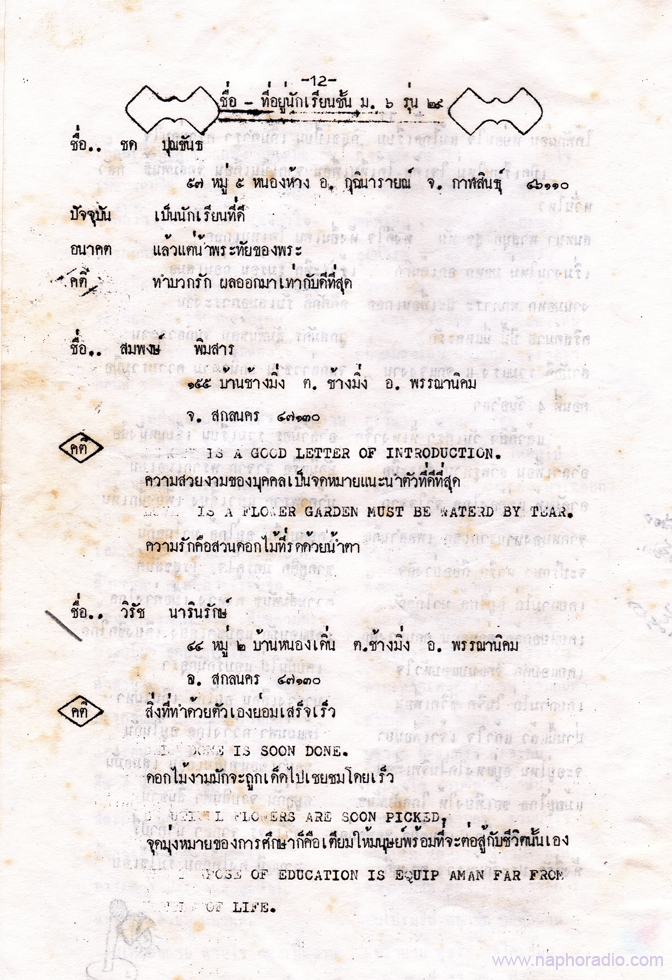 -12-
ชื่อ - ที่อยู่นักเรียนชั้น ม. ๖ รุ่น ๒๙
ชื่อ.. ชด ปุณขันธ
๕๗ หมู่ ๕ หนองห้าง อ. กุฉินารายณ์ จ. กาฬสินธุ์ ๔๖๑๑๐
ปัจจุบัน เป็นนักเรียนที่ดี
อนาคต แล้วแต่น้ำพระทัยของพระ
คติ ทำมวกรัก ผลออกมาเท่ากับดีที่สุด
ชื่อ.. สมพงษ์ พิมสาร
๑๕๕ บ้านช้างมิ่ง ต. ช้างมิ่ง อ. พรรณานิคม
จ. สกลนคร ๔๗๑๓๐
คติ IS A GOOD LETTER OF INTRODUCTION.
ความสวยงามของบุคคลเป็นจดหมายแนะนำตัวที่ดีที่สุด
IS A FLOWER GARDEN MUST BE WATERD BY TEAR.
ความรักคือสวนดอกไม้ที่รดด้วยน้ำตา
ชื่อ.. วิรัช นารินรักษ์
๔๔ หมู่ ๒ บ้านหนองเดิ่น ต.ช้างมิ่ง อ. พรรณนิคม
จ. สกลนคร ๔๗๑๓๐
คติ สิ่งที่ทำด้วยตัวเองย่อมเสร็จเร็ว
DONE IS SOON DONE.
ดอกไม้งามมักจะถูกเด็ดไปเชยชมโดยเร็ว
FLOWERS ARE SOON PICKED,
จุดมุ่งหมายของการศึกษาก็คือเตียมให้มนุษย์พร้อมที่จะต่อสู้กับชีวิตนั้นเอง
OF EDUCATION IS EQUIP AMAN FAR FROM
OF LIFE.
www.naphoradio.com